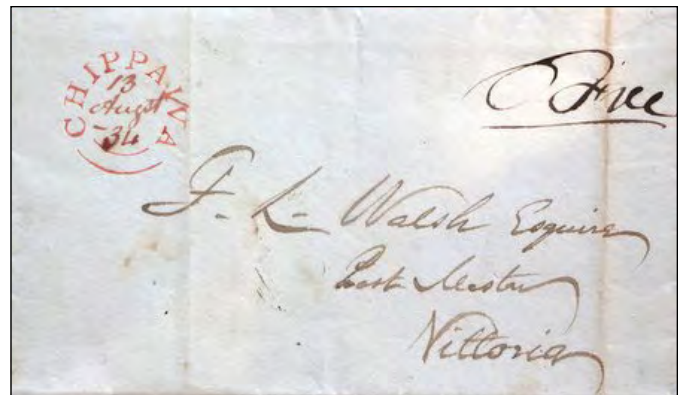 CHIPPAWA
13
Augst
34
Free
F. L. Walsh Esquire
Post Master
Vittoria